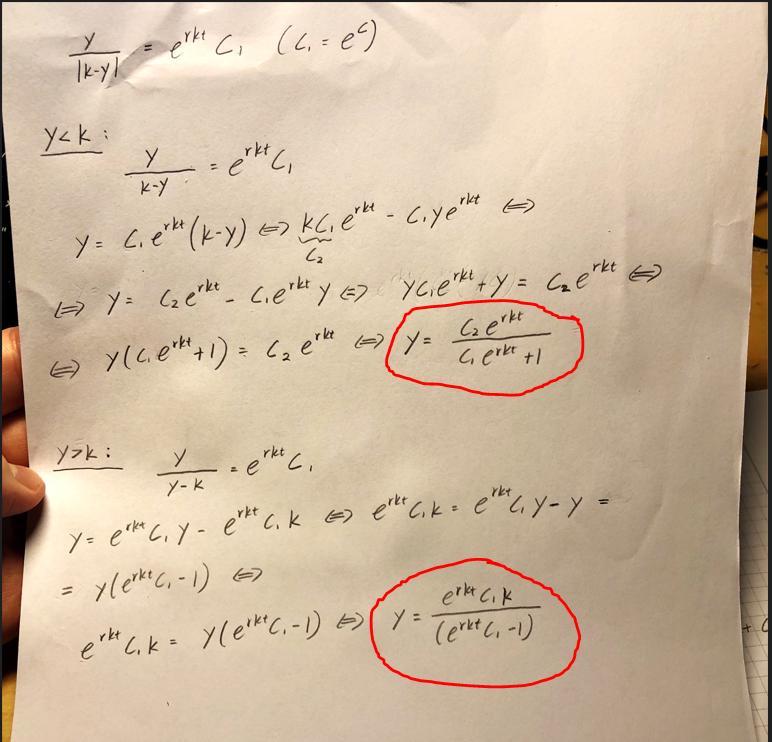 y/|k-y| = e^rkt C₁ (C₁ = e^C)
y<k:
y/(k-y) = e^rkt C₁
y = C₁e^rkt(k-y) ⇔ kC₁e^rkt - C₁ye^rkt ⇔
C₂
⇔ y = C₂e^rkt - C₁e^rkt y ⇔ yC₁e^rkt + y = C₂e^rkt ⇔
⇔ y(C₁e^rkt+1) = C₂e^rkt ⇔ y = C₂e^rkt/(C₁e^rkt+1)
y>k: y/(y-k) = e^rkt C₁
y = e^rkt C₁y - e^rkt C₁k ⇔ e^rkt C₁k = e^rkt C₁y - y =
= y(e^rkt C₁-1) ⇔
e^rkt C₁k = y(e^rkt C₁-1) ⇔ y = e^rkt C₁k/(e^rkt C₁-1)